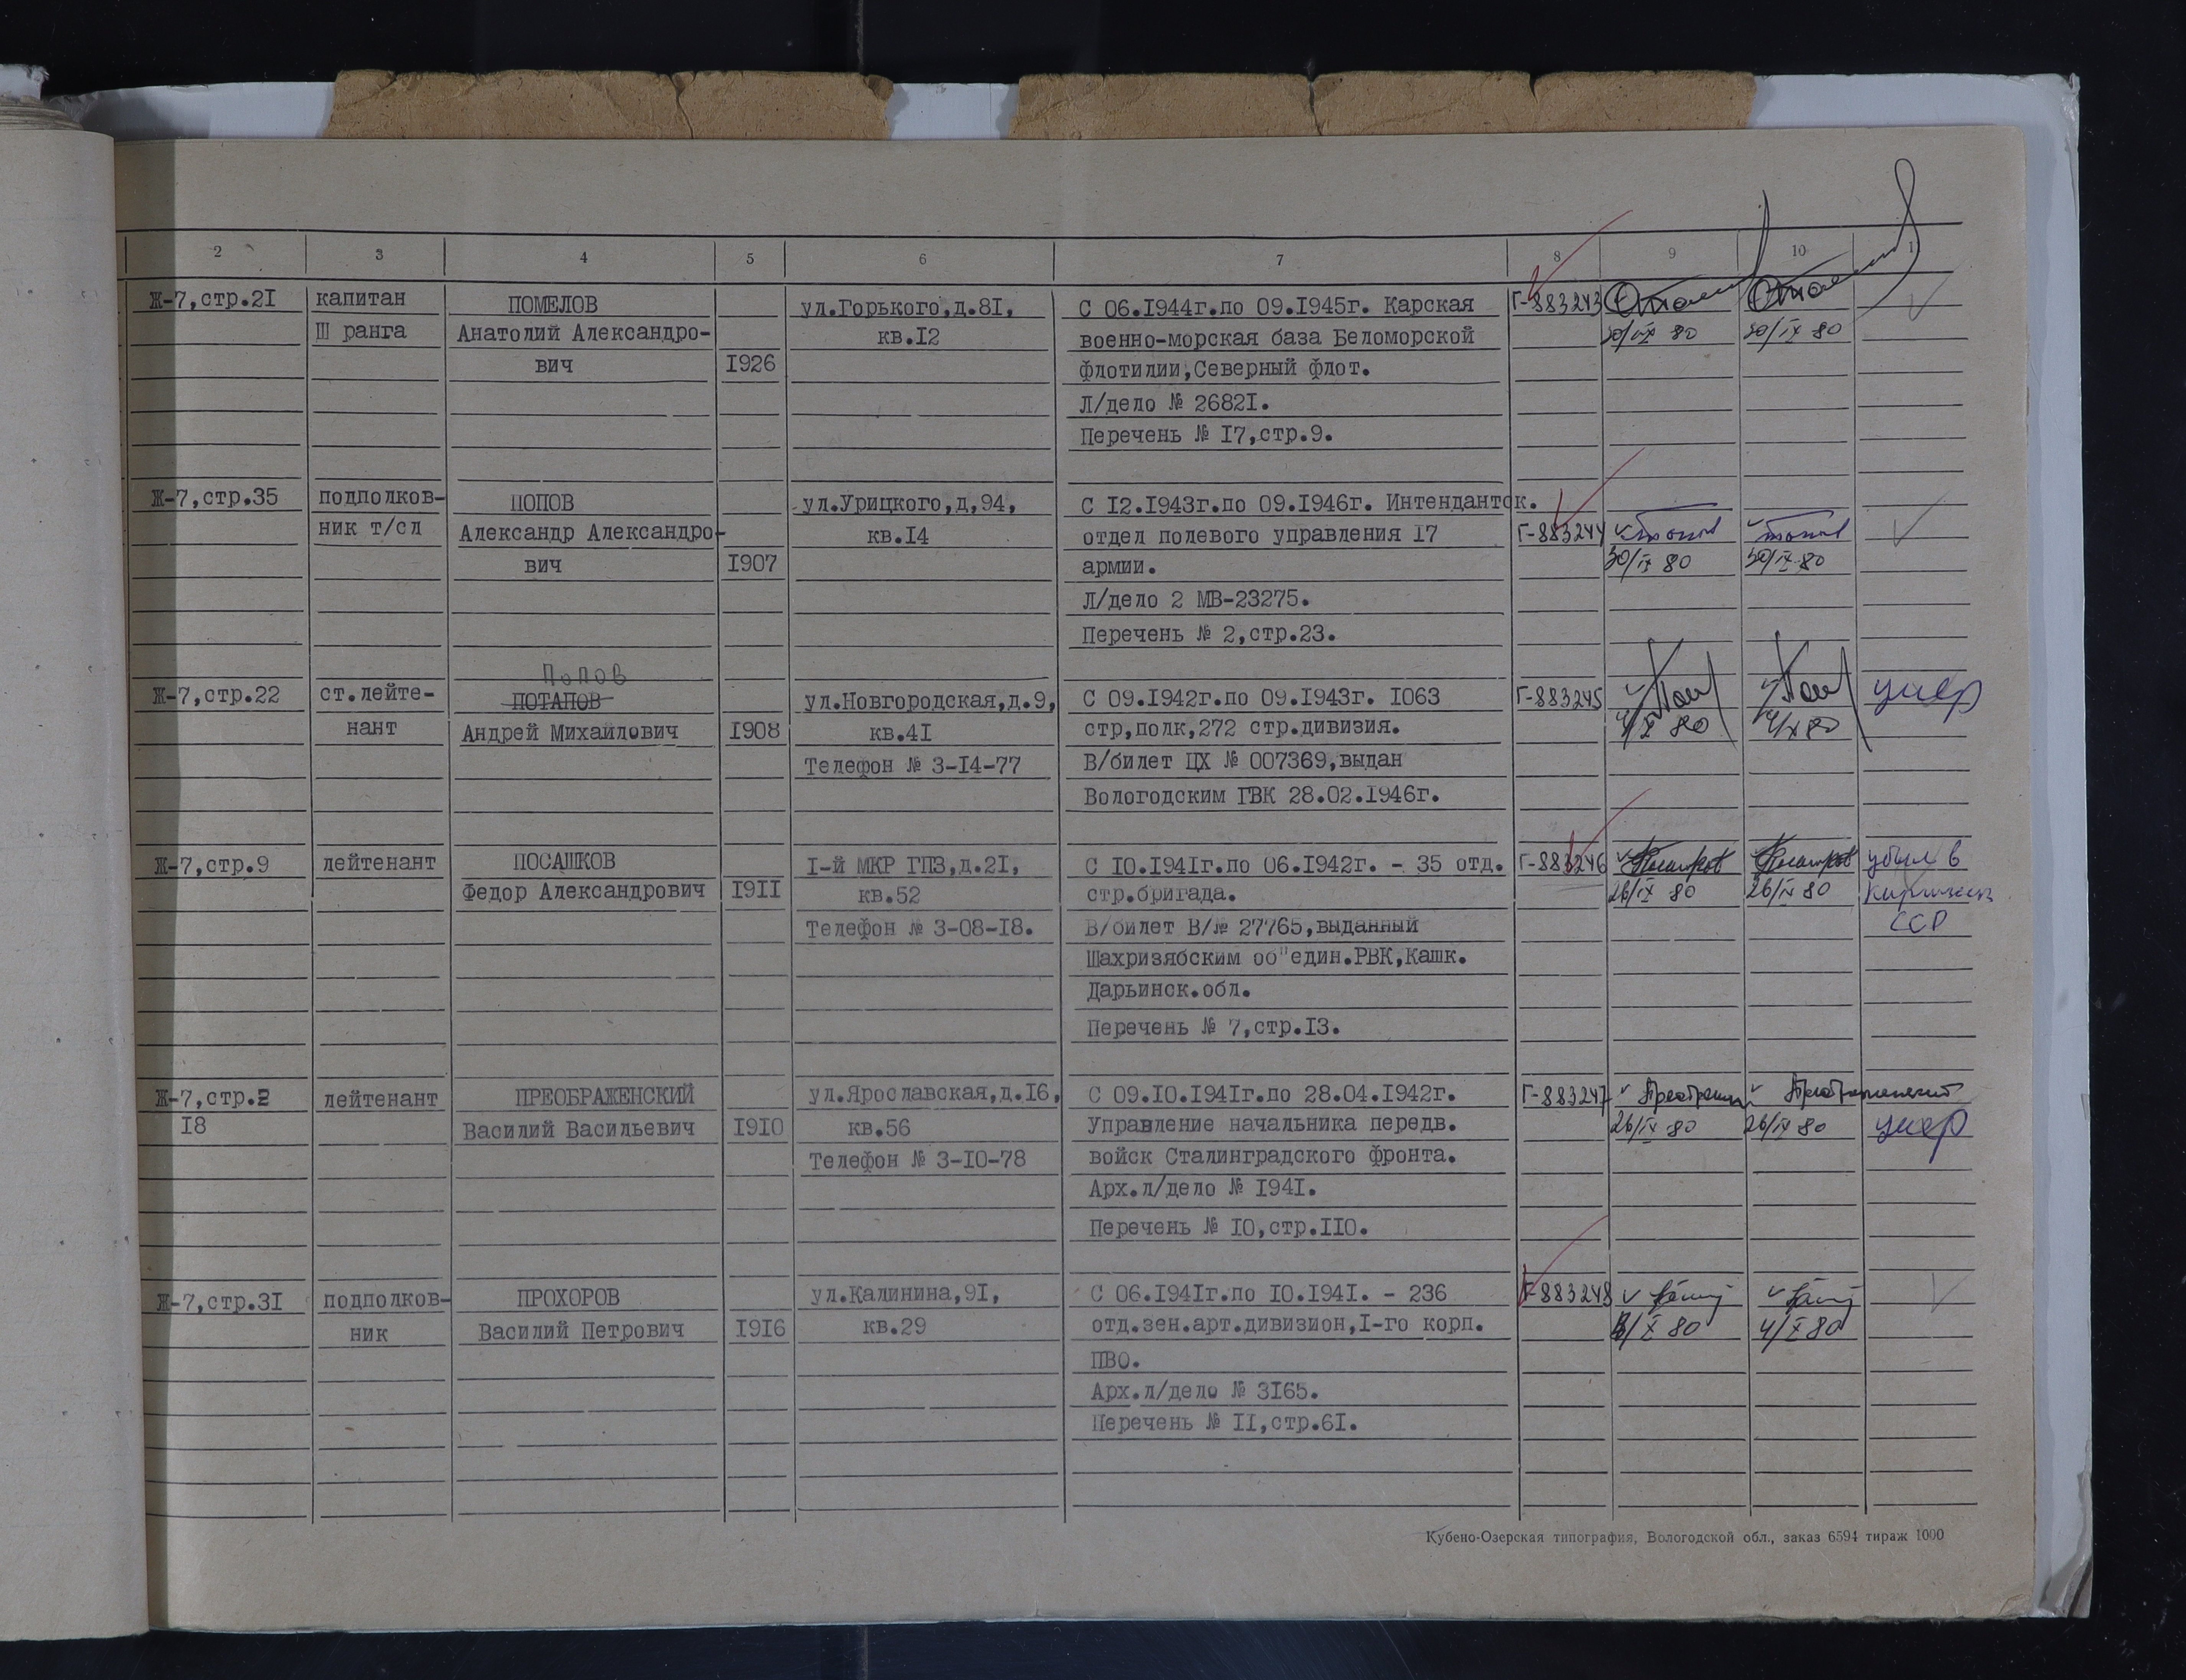 2 3 4 5 6 7 8 9 10
Ж-7,стр.2I капитан ПОМЕЛОВ ул.Горького,д.8I, С 06.I944г.по 09.I945г. Карская Г-883243
Ш ранга Анатолий Александро- кв.I2 военно-морская база Беломорской 30/IX 80 30/IX 80
вич I926 флотилии,Северный флот.
Л/дело № 2682I.
Перечень № I7,стр.9.
Ж-7,стр.35 подполков- ПОПОВ ул.Урицкого,д,94, С I2.I943г.по 09.I946г. Интендантск.
ник т/сл Александр Александро- кв.I4 отдел полевого управления I7 Г-883244
вич I907 армии. 30/IX 80 30/IX 80
Л/дело 2 МВ-23275.
Перечень № 2,стр.23.
Попов
Ж-7,стр.22 ст.лейте- ПОТАПОВ ул.Новгородская,д.9, С 09.I942г.по 09.I943г. I063 Г-883245 умер
нант Андрей Михайлович I908 кв.4I стр,полк,272 стр.дивизия. 4/X 80 4/X 80
Телефон № 3-I4-77 В/билет ЦХ № 007369,выдан
Вологодским ГВК 28.02.I946г.
Ж-7,стр.9 лейтенант ПОСАШКОВ I-й МКР ГПЗ,д.2I, С I0.I94Iг.по 06.I942г. - 35 отд. Г-883246 убыл в
Федор Александрович I9II кв.52 стр.бригада. 26/IX 80 26/IX 80
Телефон № 3-08-I8. В/билет В/№ 27765,выданный ССР
Шахризябским об"един.РВК,Кашк.
Дарьинск.обл.
Перечень № 7,стр.I3.
Ж-7,стр.2 лейтенант ПРЕОБРАЖЕНСКИЙ ул.Ярославская,д.I6, С 09.I0.I94Iг.по 28.04.I942г. Г-883247 Преображенский
I8 Василий Васильевич I9I0 кв.56 Управление начальника передв. 26/IX 80 26/IX 80 умер
Телефон № 3-I0-78 войск Сталинградского фронта.
Арх.л/дело № I94I.
Перечень № I0,стр.II0.
Ж-7,стр.3I подполков- ПРОХОРОВ ул.Калинина,9I, С 06.I94Iг.по I0.I94I. - 236 Г-883248
ник Василий Петрович I9I6 кв.29 отд.зен.арт.дивизион,I-го корп. 4/X 80
ПВО.
Арх.л/дело № 3I65.
Перечень № II,стр.6I.
Кубено-Озерская типография, Вологодской обл., заказ 6594 тираж 1000